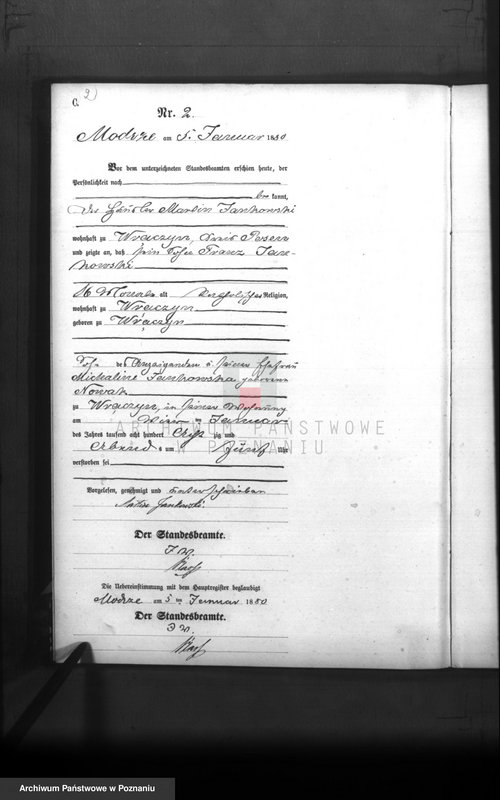 C. 2)
Nr. 2.
Modrze am 5. Januar 1880
Vor dem unterzeichneten Standesbeamten erschien heute, der
Persönlichkeit nach
be kannt,
der Häusler Martin Jankowski
wohnhaft zu Wrączyn, Kreis Posen
und zeigte an, daß sein Sohn Franz Jan-
kowski
Monate alt katholischer Religion,
wohnhaft zu Wrączyn
geboren zu Wrączyn
Sohn des Anzeigenden u. seiner Ehefrau
Michaline Jankowska geborene
Nowak
zu Wrączyn, in seiner Wohnung
am Januar
des Jahres tausend acht hundert acht zig und
Abends um fünf Uhr
verstorben sei
Vorgelesen, genehmigt und unterschrieben
Jankowski.
Der Standesbeamte.
Die Uebereinstimmung mit dem Hauptregister beglaubigt
Modrze am 5 ten Januar 1880
Der Standesbeamte.
ARCHIWUM PAŃSTWOWE
W POZNANIU
Archiwum Państwowe w Poznaniu